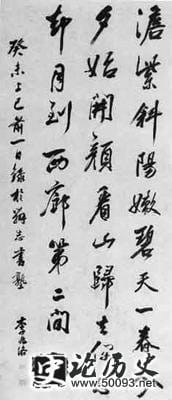 澹紫斜陽嫩碧天一春
夕始開顏看山歸去
却月到西廊第二間
癸未上巳前一日錄於書塾
李兆洛
论历史
www.50093.net